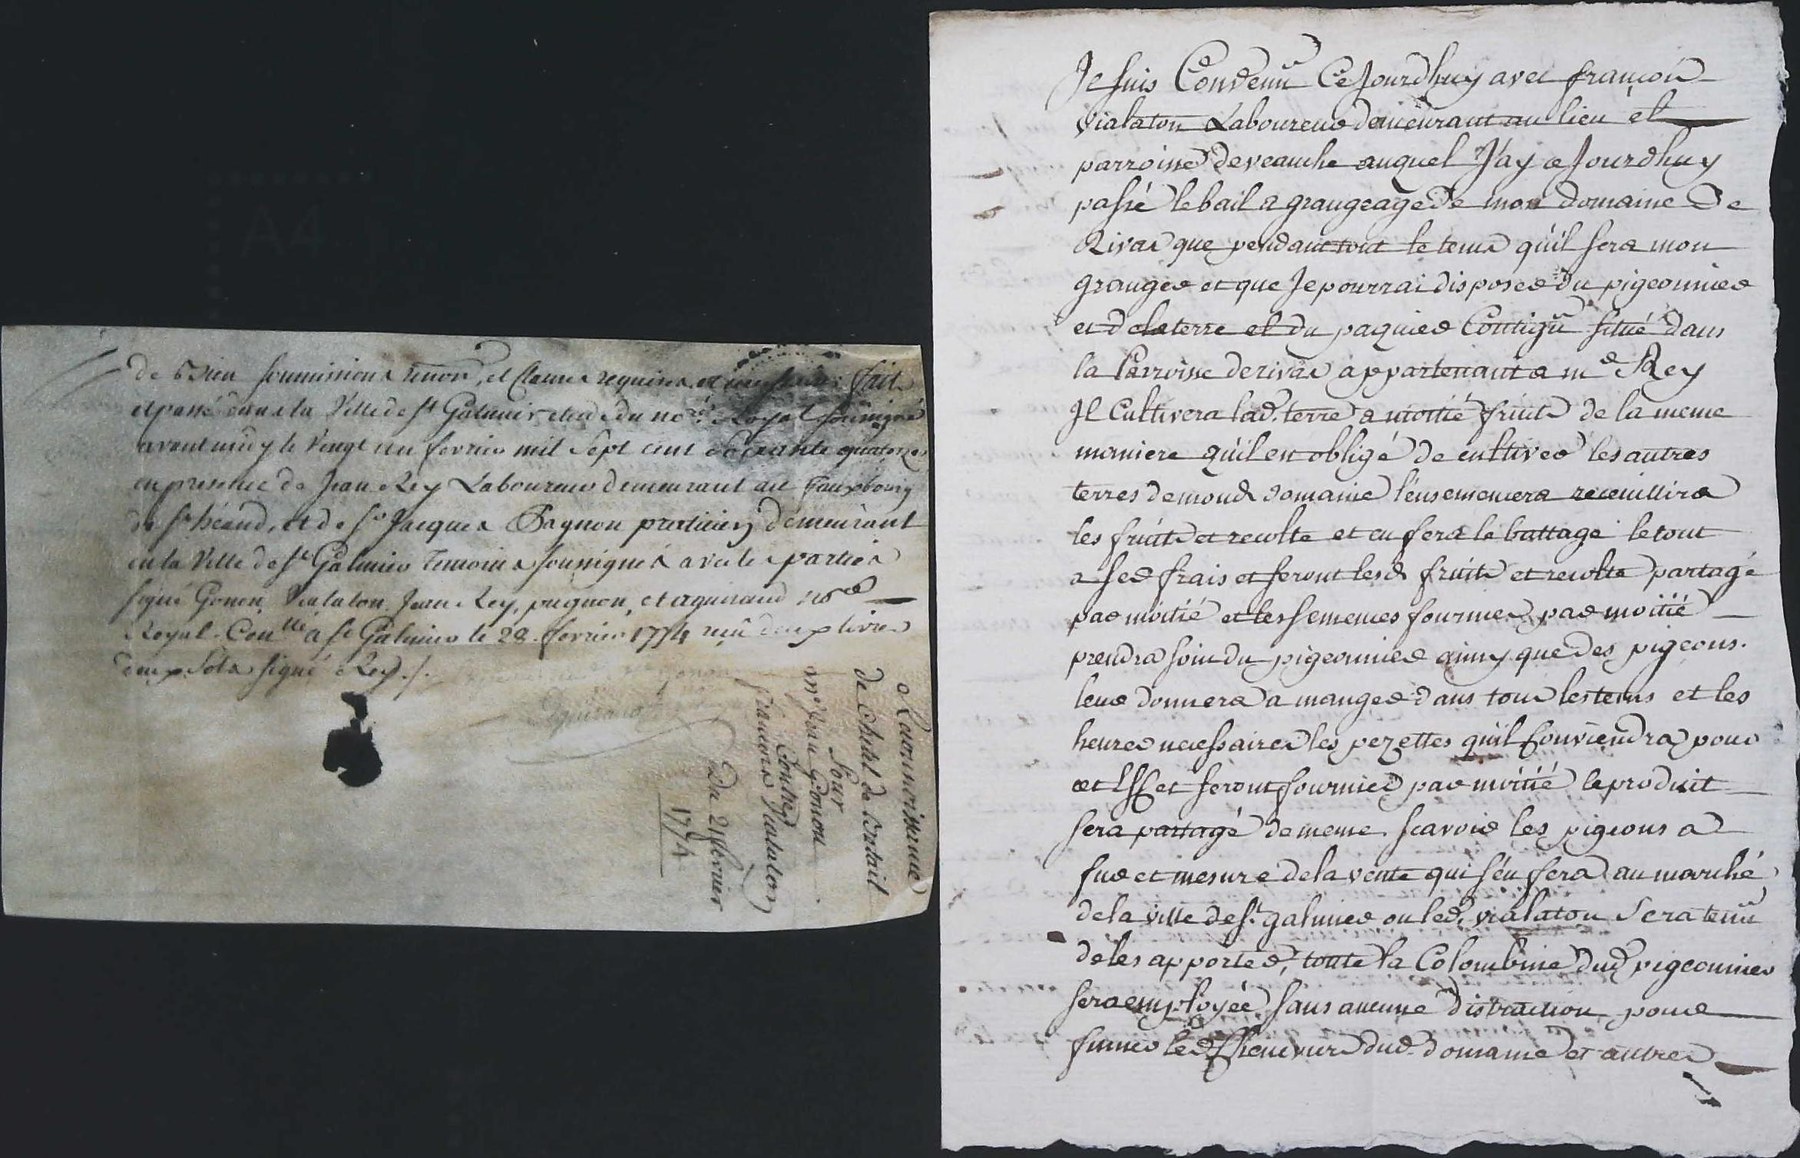 de bien soumissions renon, et clauses requises et necessaires fait
et passé dans la Ville de St Galmier etude du nore. Royal soussigné
avant midy le vingt un fevrier mil sept cent soixante quatorze
en presence de Jean Rey Laboureur demeurant au Fauxbourg
de St héand, et de Sr Jacques Pagnon praticien demeurant
en la Ville de St Galmier temoins soussignés avec les parties
signé Gonon, Vialaton, Jean Rey, pagnon, et aguiraud nore
Royal. Conllé a St Galmier le 28. fevrier 1774 reçu deux livres
deux sols signé Rey./.
Aguiraud
a Laoumoisnue
de cheptel de bétail
Pour
mre Jean Gonon
Contre
francois Vialaton
Du 21 fevrier
1774
Je suis Convenu Ce Jourdhuy avec françois
vialaton Laboureur demeurant au lieu et
parroisse de veauche auquel J'ay ce Jourdhuy
passé le bail a grangeage de mon domaine De
Rivas que pendant tout le tems qu'il sera mon
granger et que Je pourrai disposer du pigeonnier
et de la terre et du paquier Contigu situé dans
la Parroisse de rivas appartenant a md Rey
Il Cultivera lad. terre a moitié fruits de la meme
maniere qu'il est obligé de cultiver les autres
terres de mond domaine l'ensemencera receuillira
les fruits et recolte et en fera le battage le tout
a ses frais et seront lesd fruits et recolte partagé
par moitié et les semences fournies par moitié
prendra soin du pigeonnier ainsy que des pigeons.
leur donnera a manger dans tous les tems et les
heures necessaires les pezettes qu'il Conviendra pour
cet Effet seront fournies par moitié le produit
sera partagé de meme scavoir les pigeons a
fur et mesure de la vente qui s'en fera au marché
de la ville de St. galmier ou led. vialaton sera tenu
de les apporter, toute la Colombine dud pigeonnier
sera employée sans aucune distraction pour
fumer les Chenevier dud. domaine et autres